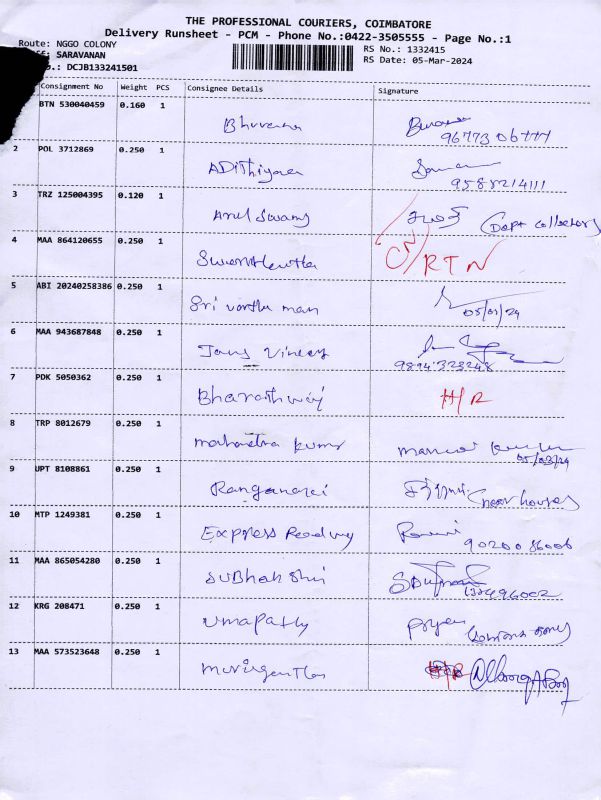 THE PROFESSIONAL COURIERS, COIMBATORE
Delivery Runsheet - PCM - Phone No.:0422-3505555 - Page No.:1
Route: NGGO COLONY
RS No.: 1332415
SARAVANAN
RS Date: 05-Mar-2024
.: DCJB133241501
Consignment No Weight PCS Consignee Details Signature
BTN 530040459 0.160 1
Bhuvana
96773 06777
2 POL 3712869 0.250 1
ADithiyaa
9588214111
3 TRZ 125004395 0.120 1
Arul Swamy
(Dept collectors)
4 MAA 864120655 0.250 1
CN/RTN
5 ABI 20240258386 0.250 1
Sri vartha man
05/01/24
6 MAA 943687848 0.250 1
9894323248
7 PDK 5050362 0.250 1
Bharathwaj H/R
8 TRP 8012679 0.250 1
mahendra kumar
05/03/24
9 UPT 8108861 0.250 1
(near house)
10 MTP 1249381 0.250 1
Express Readvy
90200 86006
11 MAA 865054280 0.250 1
SUBhak Shri
12 KRG 208471 0.250 1
Umapathy Priya
13 MAA 573523648 0.250 1